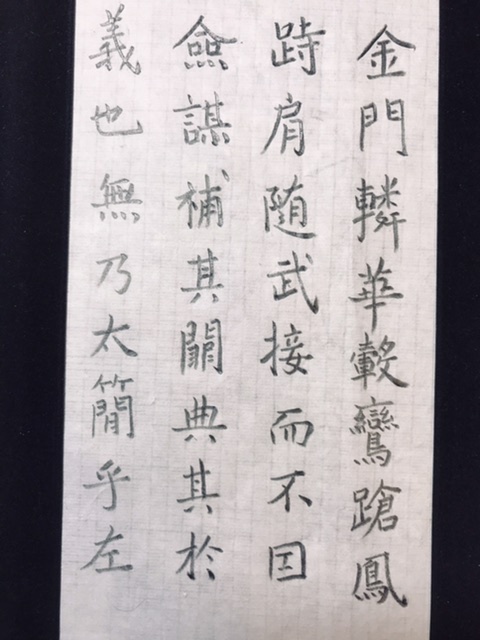 金門轔華轂鸞蹌鳳
跱肩随武接而不因
僉謀補其闕典其於
義也無乃太簡乎左